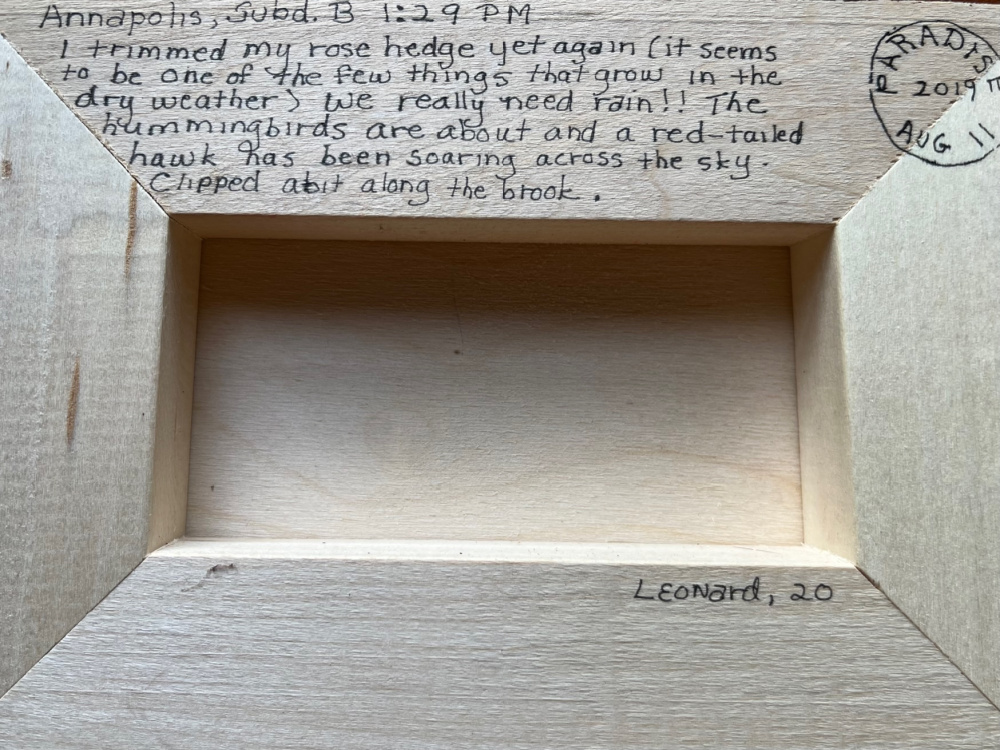 Annapolis, Subd. B 1:29 PM
I trimmed my rose hedge yet again (it seems
to be one of the few things that grow in the
dry weather) We really need rain!! The
hummingbirds are about and a red-tailed
hawk has been soaring across the sky.
Clipped abit along the brook.
PARADIS
2019
AUG 11
LEONard, 20